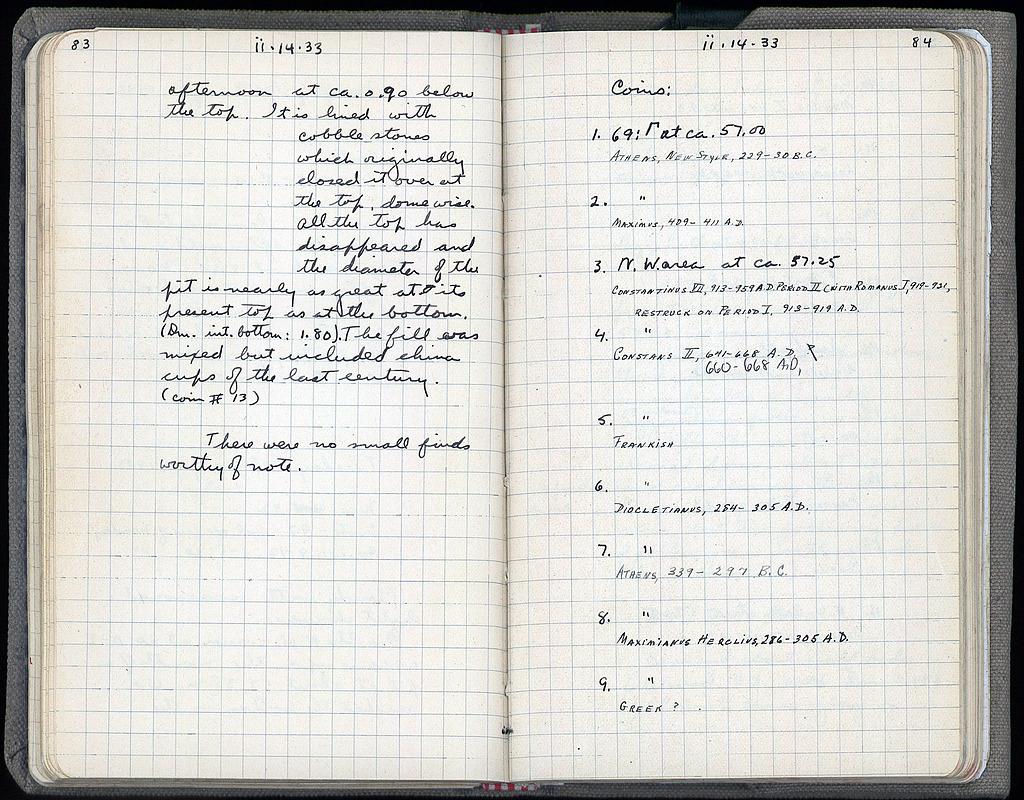 83
ii·14·33
afternoon at ca. 0.90 below
the top. It is lined with
cobble stones
which originally
closed it over at
the top, domewise.
All the top has
disappeared and
the diameter of the
pit is nearly as great at its
present top as at the bottom.
(Dm. int. bottom: 1.80). The fill was
mixed but included china
cups of the last century.
(coin # 13)
There were no small finds
worthy of note.
ii·14·33
84
Coins:
1. 69: Γ at ca. 57.00
ATHENS, NEW STYLE, 229-30 B.C.
2. "
MAXIMUS, 409-411 A.D.
3. N.W. area at ca. 57.25
CONSTANTINUS VII, 913-959 A.D. PERIOD II (WITH ROMANUS I, 919-921,
RESTRUCK ON PERIOD I, 913-919 A.D.
4. "
CONSTANS II, 641-668 A.D.
660-668 A.D,
5. "
FRANKISH
6. "
DIOCLETIANUS, 284-305 A.D.
7. "
ATHENS, 339-297 B.C.
8. "
MAXIMIANUS HERCLIUS, 286-305 A.D.
9. "
GREEK ?